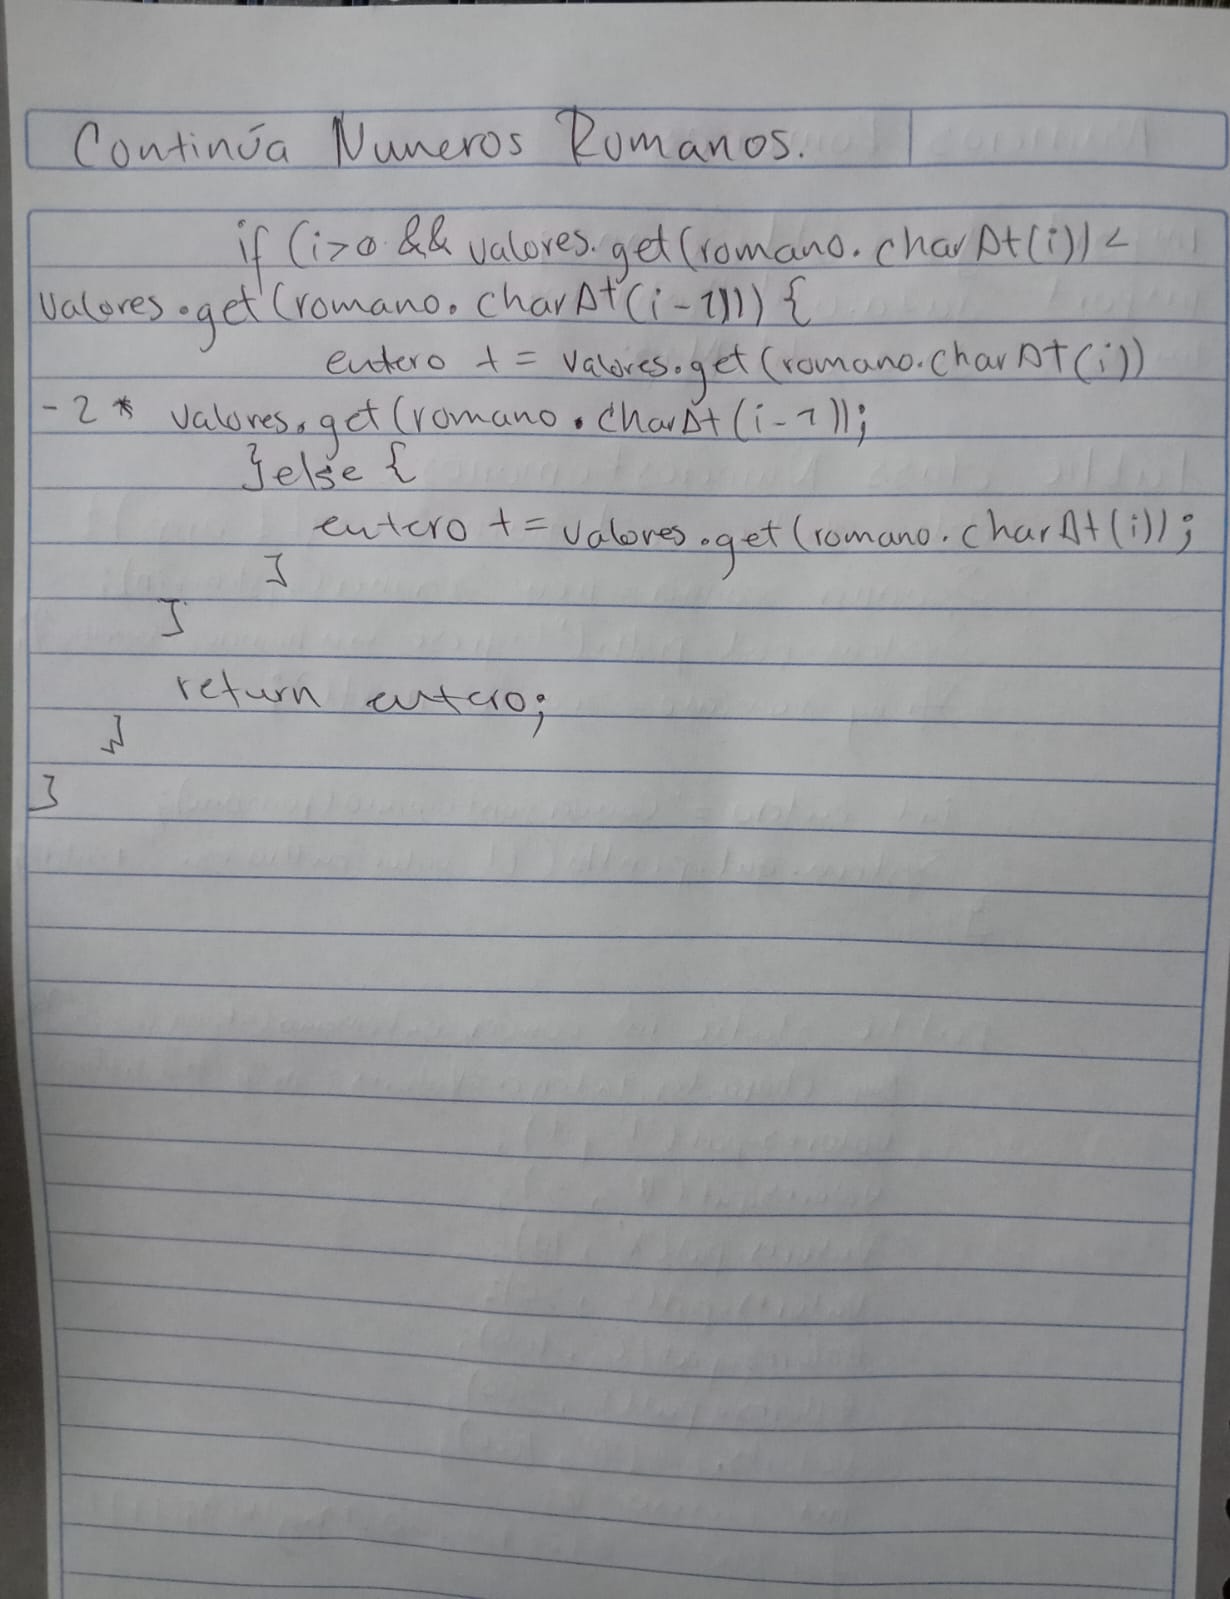 Continúa Numeros Romanos.
if (i>0 && valores.get(romano.charAt(i)) <
valores.get(romano.charAt(i-1))) {
entero += valores.get(romano.charAt(i))
-2 * valores.get(romano.charAt(i-1));
}else {
entero += valores.get(romano.charAt(i));
}
}
return entero;
}
}